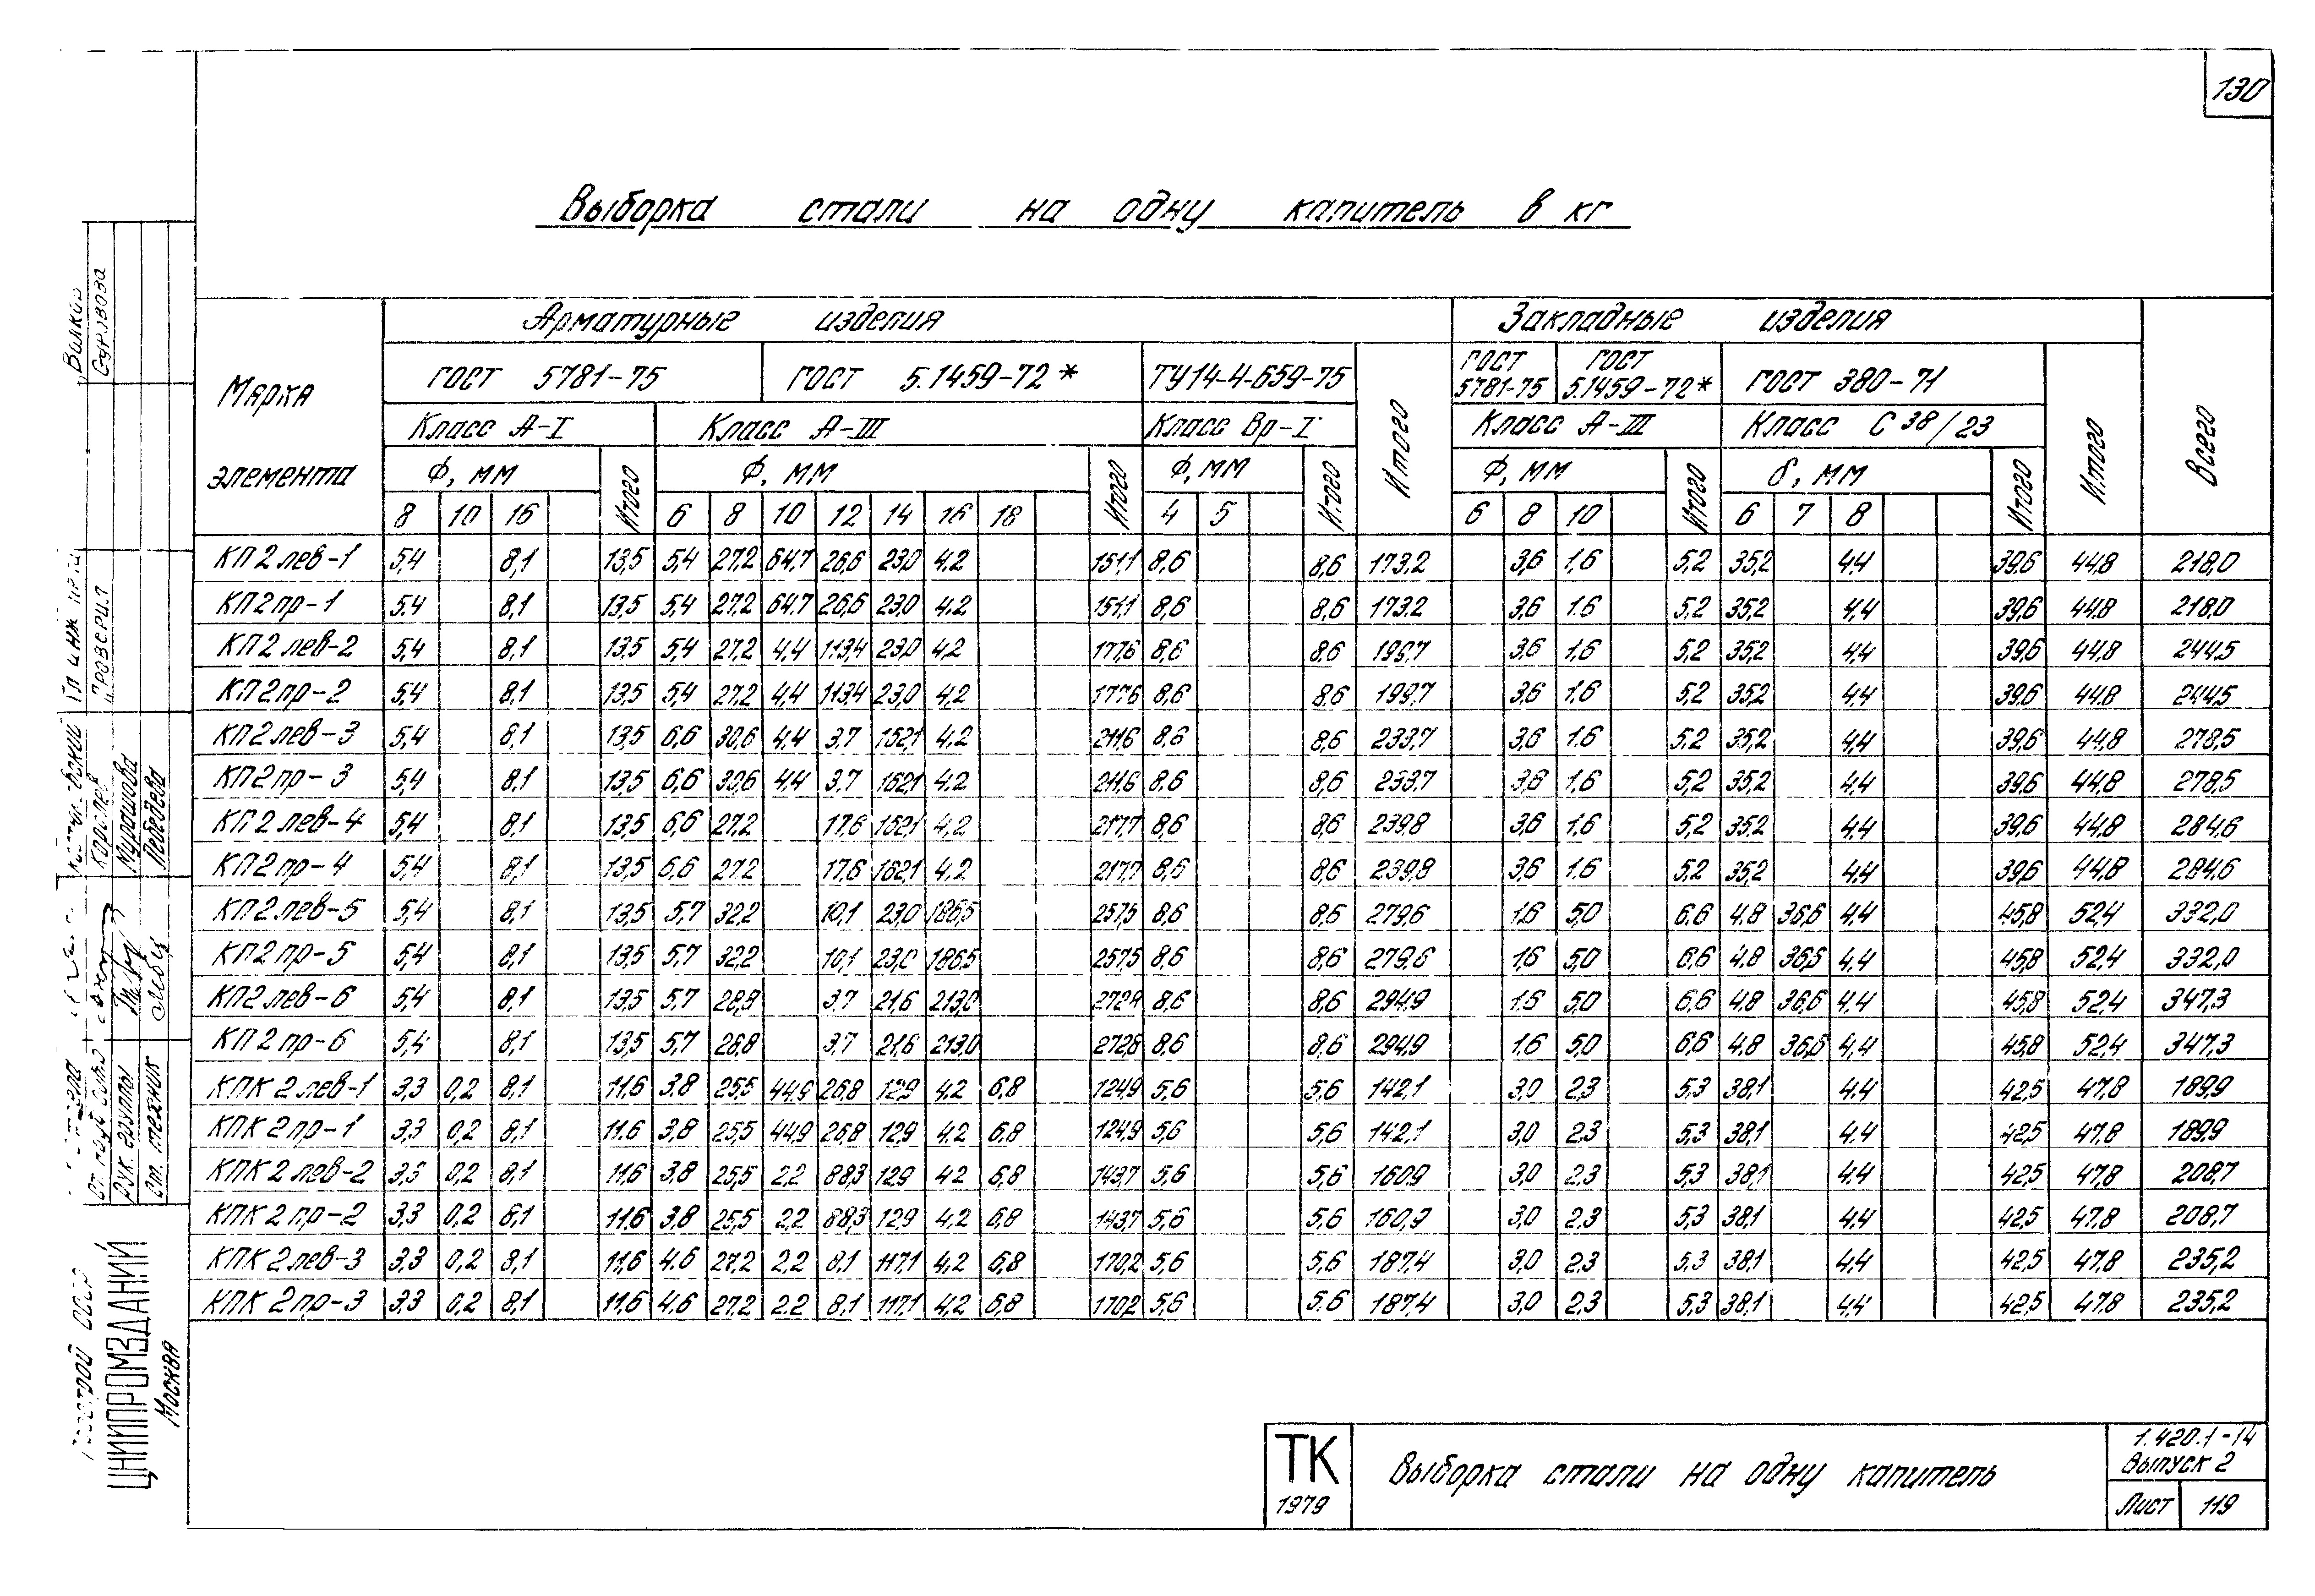 130
Выборка стали на одну капитель в кг
Марка элемента
Арматурные изделия
Закладные изделия
Всего
ГОСТ 5781-75
ГОСТ 5.1459-72*
ТУ14-4-659-75
Итого
ГОСТ 5781-75
ГОСТ 5.1459-72*
ГОСТ 380-71
Итого
Класс А-I
Класс А-III
Класс Вр-I
Класс А-III
Класс С 38/23
Ф, мм
Итого
Ф, мм
Итого
Ф, мм
Итого
Ф, мм
Итого
δ, мм
Итого
8 10 16 6 8 10 12 14 16 18 4 5 6 8 10 6 7 8
КП2лев-1 5,4 8,1 13,5 5,4 27,2 64,7 26,6 23,0 4,2 151,1 8,6 8,6 173,2 3,6 1,6 5,2 35,2 4,4 39,6 44,8 218,0
КП2пр-1 5,4 8,1 13,5 5,4 27,2 64,7 26,6 23,0 4,2 151,1 8,6 8,6 173,2 3,6 1,6 5,2 35,2 4,4 39,6 44,8 218,0
КП2лев-2 5,4 8,1 13,5 5,4 27,2 4,4 113,4 23,0 4,2 177,6 8,6 8,6 199,7 3,6 1,6 5,2 35,2 4,4 39,6 44,8 244,5
КП2пр-2 5,4 8,1 13,5 5,4 27,2 4,4 113,4 23,0 4,2 177,6 8,6 8,6 199,7 3,6 1,6 5,2 35,2 4,4 39,6 44,8 244,5
КП2лев-3 5,4 8,1 13,5 6,6 30,6 4,4 3,7 162,1 4,2 211,6 8,6 8,6 233,7 3,6 1,6 5,2 35,2 4,4 39,6 44,8 278,5
КП2пр-3 5,4 8,1 13,5 6,6 30,6 4,4 3,7 162,1 4,2 211,6 8,6 8,6 233,7 3,6 1,6 5,2 35,2 4,4 39,6 44,8 278,5
КП2лев-4 5,4 8,1 13,5 6,6 27,2 17,6 162,1 4,2 217,7 8,6 8,6 239,8 3,6 1,6 5,2 35,2 4,4 39,6 44,8 284,6
КП2пр-4 5,4 8,1 13,5 6,6 27,2 17,6 162,1 4,2 217,7 8,6 8,6 239,8 3,6 1,6 5,2 35,2 4,4 39,6 44,8 284,6
КП2лев-5 5,4 8,1 13,5 5,7 32,2 10,1 23,0 186,5 257,5 8,6 8,6 279,6 1,6 5,0 6,6 4,8 36,6 4,4 45,8 52,4 332,0
КП2пр-5 5,4 8,1 13,5 5,7 32,2 10,1 23,0 186,5 257,5 8,6 8,6 279,6 1,6 5,0 6,6 4,8 36,6 4,4 45,8 52,4 332,0
КП2лев-6 5,4 8,1 13,5 5,7 28,8 3,7 21,6 213,0 272,8 8,6 8,6 294,9 1,6 5,0 6,6 4,8 36,6 4,4 45,8 52,4 347,3
КП2пр-6 5,4 8,1 13,5 5,7 28,8 3,7 21,6 213,0 272,8 8,6 8,6 294,9 1,6 5,0 6,6 4,8 36,6 4,4 45,8 52,4 347,3
КПК2лев-1 3,3 0,2 8,1 11,6 3,8 25,5 44,9 26,8 12,9 4,2 6,8 124,9 5,6 5,6 142,1 3,0 2,3 5,3 38,1 4,4 42,5 47,8 189,9
КПК2пр-1 3,3 0,2 8,1 11,6 3,8 25,5 44,9 26,8 12,9 4,2 6,8 124,9 5,6 5,6 142,1 3,0 2,3 5,3 38,1 4,4 42,5 47,8 189,9
КПК2лев-2 3,3 0,2 8,1 11,6 3,8 25,5 2,2 88,3 12,9 4,2 6,8 143,7 5,6 5,6 160,9 3,0 2,3 5,3 38,1 4,4 42,5 47,8 208,7
КПК2пр-2 3,3 0,2 8,1 11,6 3,8 25,5 2,2 88,3 12,9 4,2 6,8 143,7 5,6 5,6 160,9 3,0 2,3 5,3 38,1 4,4 42,5 47,8 208,7
КПК2лев-3 3,3 0,2 8,1 11,6 4,6 27,2 2,2 8,1 117,1 4,2 6,8 170,2 5,6 5,6 187,4 3,0 2,3 5,3 38,1 4,4 42,5 47,8 235,2
КПК2пр-3 3,3 0,2 8,1 11,6 4,6 27,2 2,2 8,1 117,1 4,2 6,8 170,2 5,6 5,6 187,4 3,0 2,3 5,3 38,1 4,4 42,5 47,8 235,2
ТК
1979
Выборка стали на одну капитель
1.420.1-14
Выпуск 2
Лист 119
СССР
ЦНИИПРОМЗДАНИЙ
Москва
рук. группы Мурашова
ст. техник Лебедева
Проверил